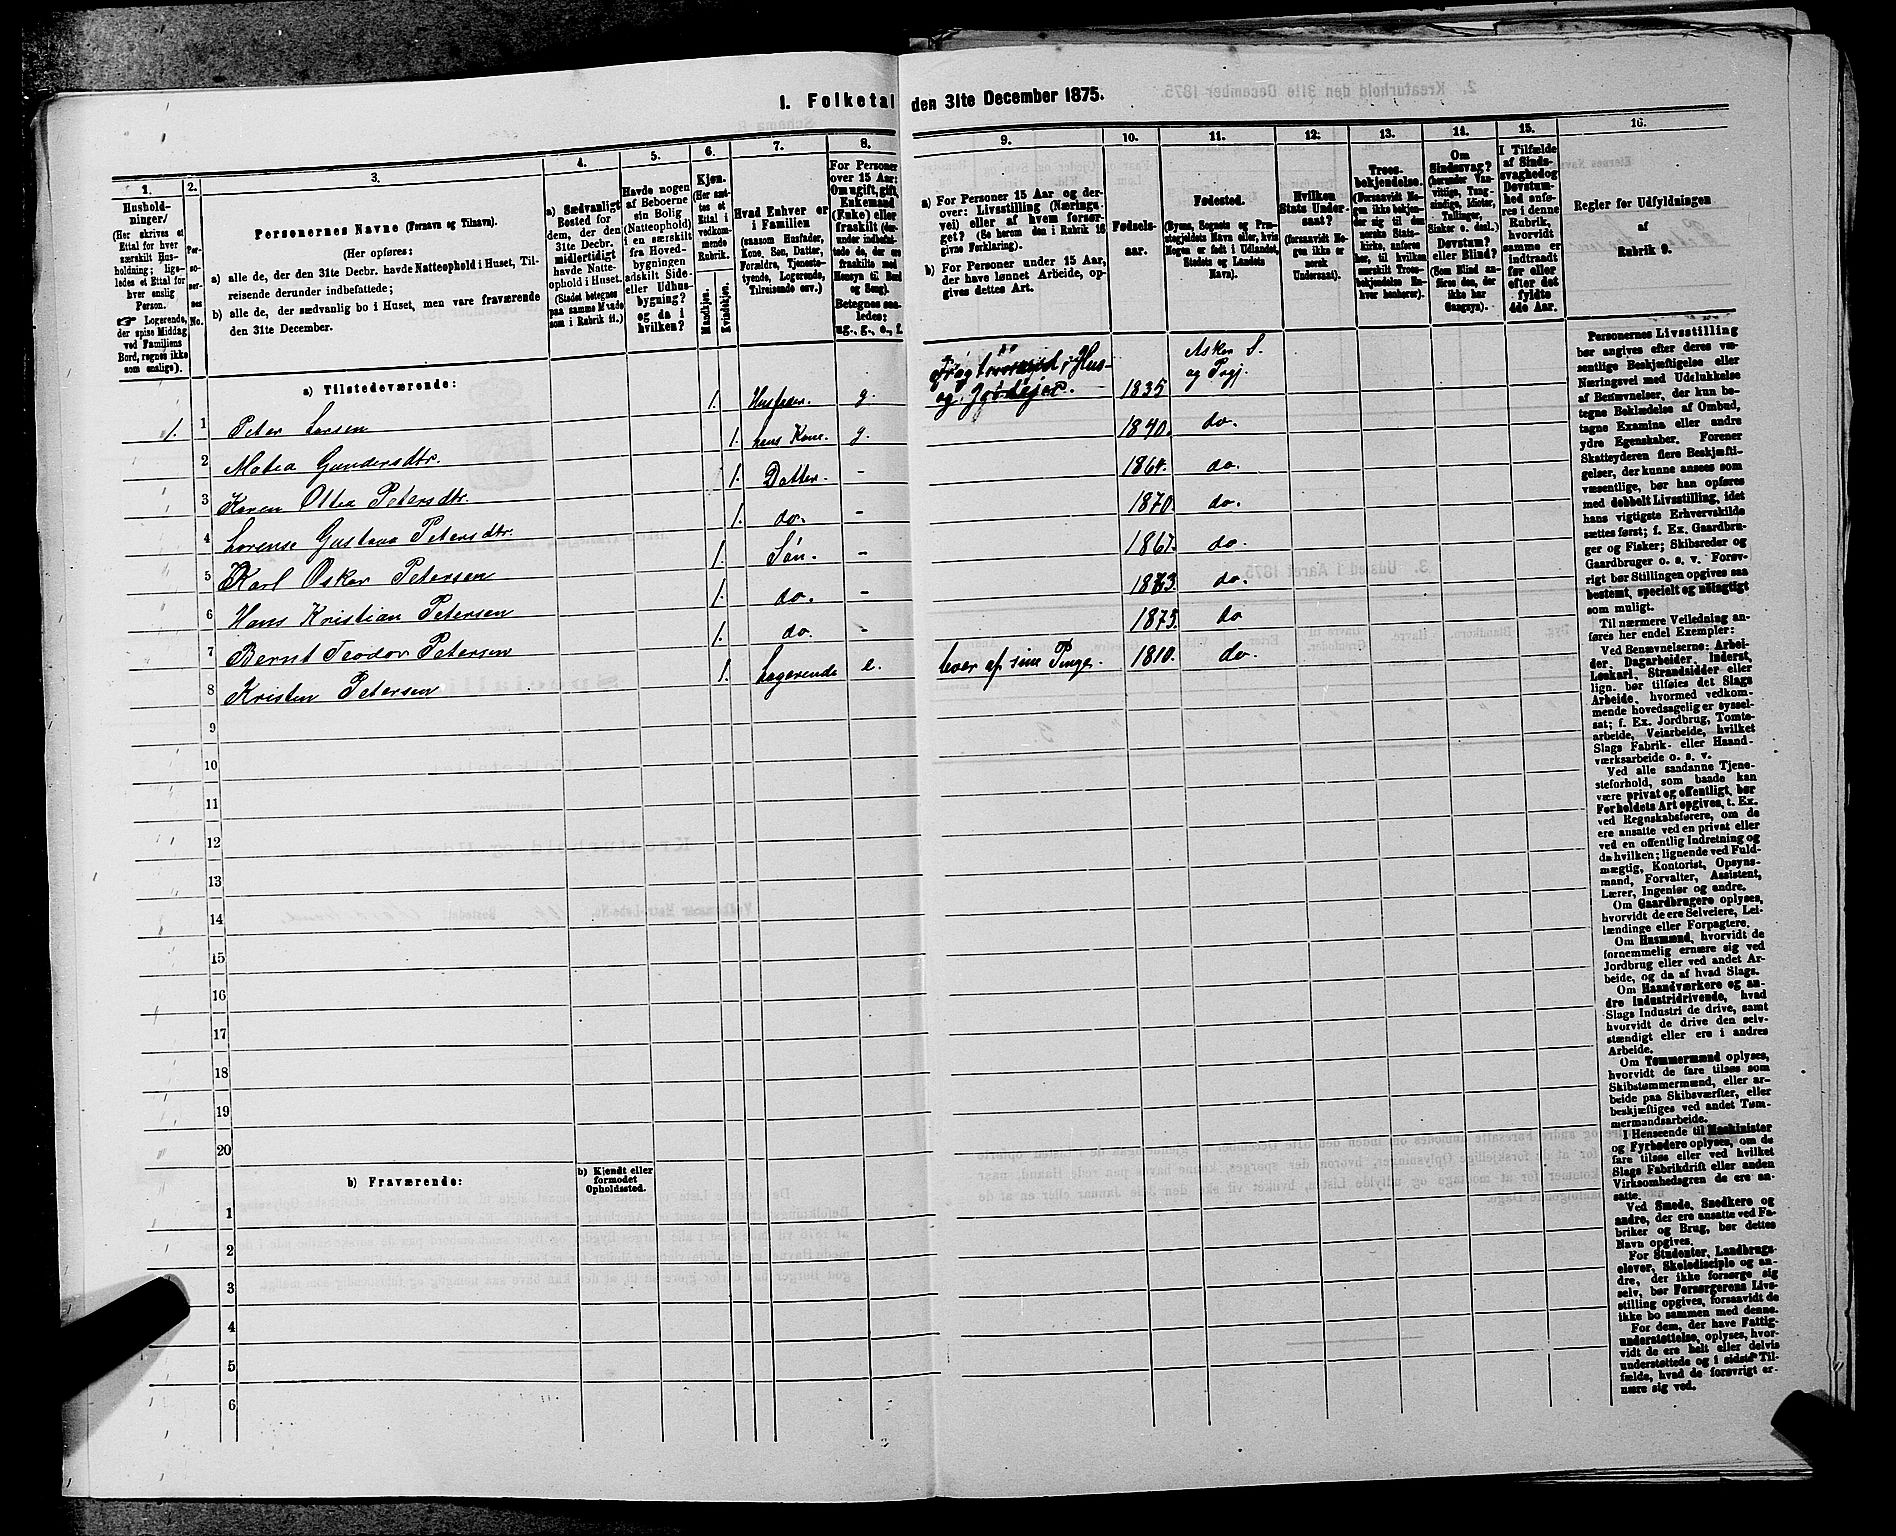 1. Folketal den 31te December 1875.
1.
Hushold-
ninger/
(Her skrives et
Ettal for hver
særskilt Hus-
holdning; lige-
ledes et Ettal for
hver enslig
Person.
☞ Logerende,
der spise Middag
ved Familiens
Bord, regnes ikke
som enslige).
2.
Per-
so-
ner-
nes
No.
3.
Personernes Navne (Fornavn og Tilnavn).
(Her opføres:
a) alle de, der den 31te Decbr. havde Natteophold i Huset, Til-
reisende derunder indbefattede;
b) alle de, der sædvanlig bo i Huset, men vare fraværende
den 31te December.
4.
a) Sædvanligt
Bosted for
dem, der den
31te Decbr.
midlertidigt
havde Natte-
ophold i Huset.
(Stedet betegnes
paa samme Maade
som i Rubrik 11.)
5.
Havde nogen
af Beboerne
sin Bolig
(Natteophold)
i en særskilt
fra Hoved-
bygningen
adskilt Side-
eller Udhus-
bygning?
og da i
hvilken?
6.
Kjøn.
(Her sæt-
tes et
Ettal i
vedkom-
mende
Rubrik.
Mandkjøn.
Kvindekjøn.
7.
Hvad Enhver er
i Familien
(saasom Husfader,
Kone, Søn, Datter,
Forældre, Tjeneste-
tyende, Logerende,
Tilreisende osv.)
8.
For Personer
over 15 Aar:
Om ugift, gift,
Enkemand
(Enke) eller
fraskilt (der-
under indbefat-
tede de, der ere
fraskilte med
Hensyn til Bord
og Seng).
Betegnes saa-
ledes:
ug., g., e., f.
9.
a) For Personer 15 Aar og der-
over: Livsstilling (Nærings-
vei) eller af hvem forsør-
get? (Se herom den i Rubrik 16
givne Forklaring).
b) For Personer under 15 Aar,
der have lønnet Arbeide, op-
gives dettes Art.
10.
Fødsels-
aar.
11.
Fødested.
(Byens, Sognets og Præ-
stegjeldets Navn eller, hvis
Nogen er født i Udlandet,
Stedets og Landets
Navn).
12.
Hvilken
Stats Under-
saat?
(forsaavidt No-
gen ikke er
norsk
Undersaat).
13.
Troes-
bekjendelse.
(Forsaavidt No-
gen ikke bekjen-
der sig til den
norske Stats-
kirke, anføres
her, til hvilken
særskilt Troes-
bekjendelse En-
hver henhører).
14.
Om
Sindssvag?
(herunder Van-
vittige, Tung-
sindige, Idioter,
Tullinger,
Sinker o. desl.)
Døvstum?
eller Blind?
(Som Blind an-
føres den, der
ikke har
Gangsyn).
15.
I Tilfælde
af Sinds-
svaghed og
Døvstum-
hed anfø-
res i denne
Rubrik,
hvorvidt
samme er
indtraadt
før eller
efter det
fyldte
4de Aar.
16.
Regler for Udfyldningen
af
Rubrik 9.
a) Tilstedeværende:
1. 1 Peter Larsen 1. Husfader. g. og 1835 Asker S. og Prgj.
2 Matea Gundersdtr. 1. hans Kone. g. 1840. do.
3 Karen Oltea Petersdtr. 1. Datter. - 1864. do.
4 Lorense Gustava Petersdtr. 1. do. - 1870. do.
5 Karl Oskar Petersen 1. Søn. - 1867. do.
6 Hans Kristian Petersen 1. do. - 1873. do.
7 Bernt Teodor Petersen 1. do. - 1873. do
8 Kristen Petersen 1. Logerende e. lever af sine Penge. 1810. do.
9
10
11
12
13
14
15
16
17
18
19
20
b) Fraværende:
b) Kjendt eller
formodet
Opholdssted.
1
2
3
4
5
6
Personernes Livsstilling
bør angives efter deres væ-
sentlige Beskjæftigelse eller
Næringsvei med Udelukkelse
af Benævnelser, der kun be-
tegne Beklædelse af Ombud,
tagne Examina eller andre
ydre Egenskaber. Forener
Skatteyderen flere Beskjæfti-
gelser, der kunne ansees som
væsentlige, bør han opføres
med dobbelt Livsstilling, idet
hans vigtigste Erhvervskilde
sættes først; f. Ex. Gaardbru-
ger og Fisker; Skibsreder og
Gaardbruger o. s. v. Forøv-
rigt bør Stillingen opgives saa
bestemt, specielt og nøiagtigt
som muligt.
Til nærmere Veiledning an-
føres her endel Exempler:
Ved Benævnelserne: Arbei-
der, Dagarbeider, Inderst,
Løskarl, Strandsidder eller
lign. bør tilføies det Slags
Arbeide, hvormed vedkom-
mende hovedsagelig er syssel-
sat; f. Ex. Jordbrug, Tomte-
arbeide, Veiarbeide, hvilket
Slags Fabrik- eller Haand-
værksarbeide o. s. v.
Ved alle saadanne Tjene-
steforhold, som baade kan
være privat og offentligt, bør
Forholdets Art opgives, t. Ex.
ved Regnskabsførere, om de
ere ansatte ved en privat eller
ved en offentlig Indretning og
da hvilken; lignende ved Fuld-
mægtig, Kontorist, Opsyns-
mand, Forvalter, Assistent,
Lærer, Ingeniør og andre.
Om Gaardbrugere oplyses,
hvorvidt de ere Selveiere, Lei-
lændinge eller Forpagtere.
Om Husmænd, hvorvidt de
fornemmelig ernære sig ved
Jordbrug eller ved andet Ar-
beide, og da af hvad Slags.
Om Haandværkere og an-
dre Industridrivende, hvad
Slags Industri de drive, samt
hvorvidt de drive den selv-
stændigt eller ere i andres
Arbeide.
Om Tømmermænd oplyses,
hvorvidt de fare tilsøs som
Skibstømmermænd, eller ar-
beide paa Skibsværfter, eller
beskjæftiges ved andet Tøm-
mermandsarbeide.
I Henseende til Maskinister
og Fyrbødere oplyses, om de
fare tilsøs eller ved hvilket
Slags Fabrikdrift eller anden
Virksomhedsgren de ere an-
satte.
Ved Smede, Snedkere og
andre, der ere ansatte ved Fa-
briker og Brug, bør dettes
Navn opgives.
For Studenter, Landbrugs-
elever, Skoledisciple og an-
dre, der ikke forsørge sig
selv, bør Forsørgerens Livs-
stilling opgives, forsaavidt de
ikke bo sammen med denne.
For dem, der have Fattig-
understøttelse, oplyses, hvor-
vidt de ere helt eller delvis
understøttede og i sidste Til-
fælde, hvad de forøvrigt er-
nære sig ved.